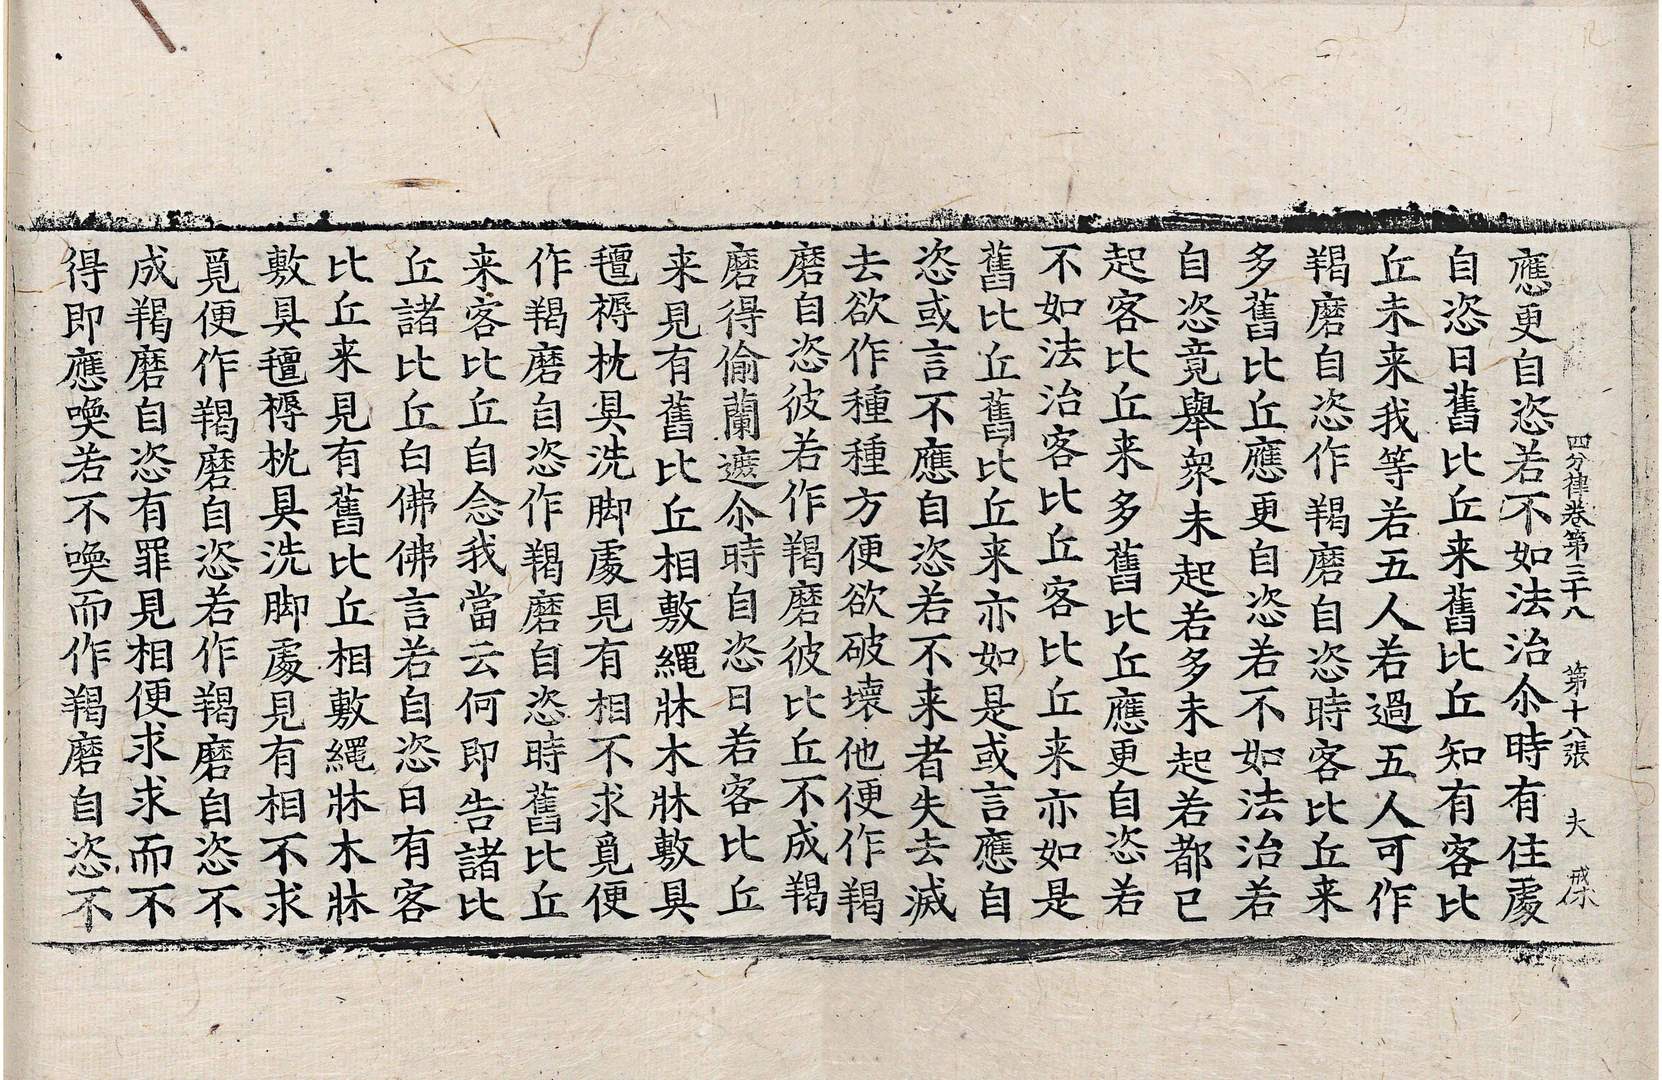 四分律卷第三十八 第十八張 夫 戒
應更自恣若不如法治尒時有住處
自恣日舊比丘来舊比丘知有客比
丘未来我等若五人若過五人可作
羯磨自恣作羯磨自恣時客比丘来
多舊比丘應更自恣若不如法治若
自恣竟舉衆未起若多未起若都已
起客比丘来多舊比丘應更自恣若
不如法治客比丘客比丘来亦如是
舊比丘舊比丘来亦如是或言應自
恣或言不應自恣若不来者失去滅
去欲作種種方便欲破壞他便作羯
磨自恣彼若作羯磨彼比丘不成羯
磨得偷蘭遮尒時自恣日若客比丘
来見有舊比丘相敷繩牀木牀敷具
氊褥枕具洗脚處見有相不求覓便
作羯磨自恣作羯磨自恣時舊比丘
来客比丘自念我當云何即告諸比
丘諸比丘白佛佛言若自恣日有客
比丘来見有舊比丘相敷繩牀木牀
敷具氊褥枕具洗脚處見有相不求
覓便作羯磨自恣若作羯磨自恣不
成羯磨自恣有罪見相便求求而不
得即應喚若不喚而作羯磨自恣不